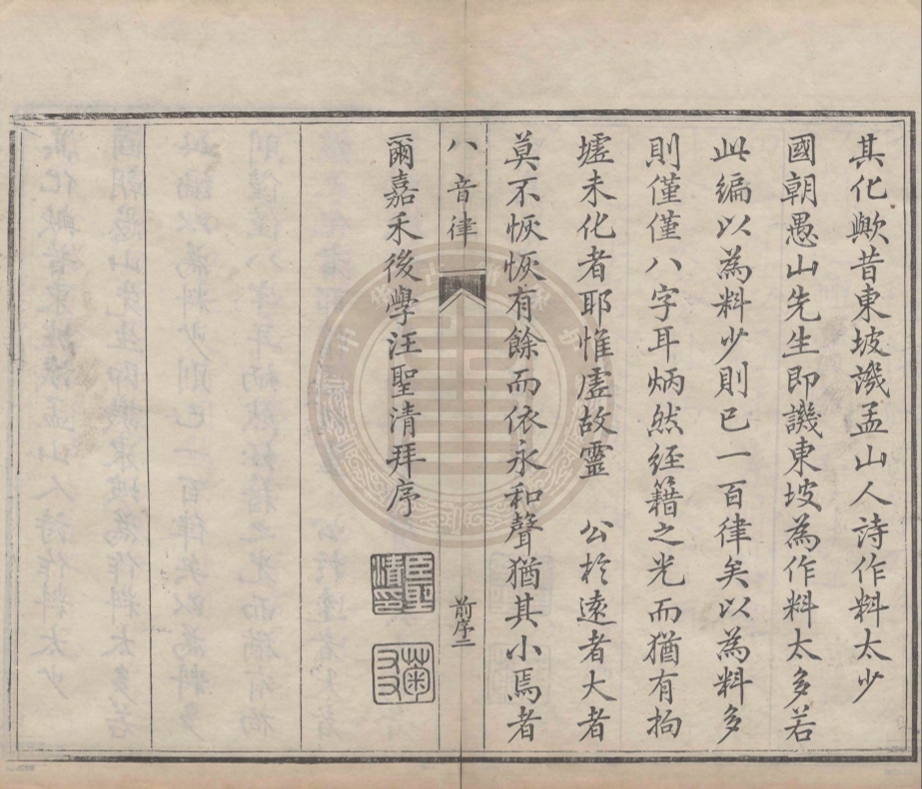 其化歟昔東坡譏孟山人詩作料太少
國朝愚山先生即譏東坡為作料太多若
此編以為料少則已一百律矣以為料多
則僅僅八字耳炳然經籍之光而猶有拘
墟未化者耶惟虛故靈　公於遠者大者
莫不恢恢有餘而依永和聲猶其小焉者
八音律
前序二
爾嘉禾後學汪聖清拜序
臣聖清印
菊叟